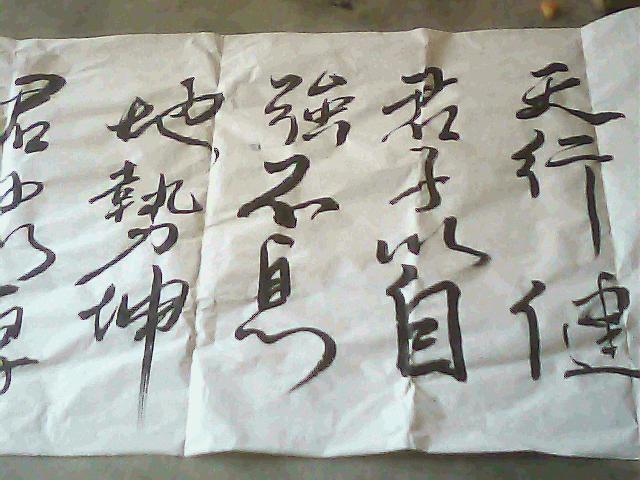 天行健
君子以自
強不息
地勢坤
君子以厚